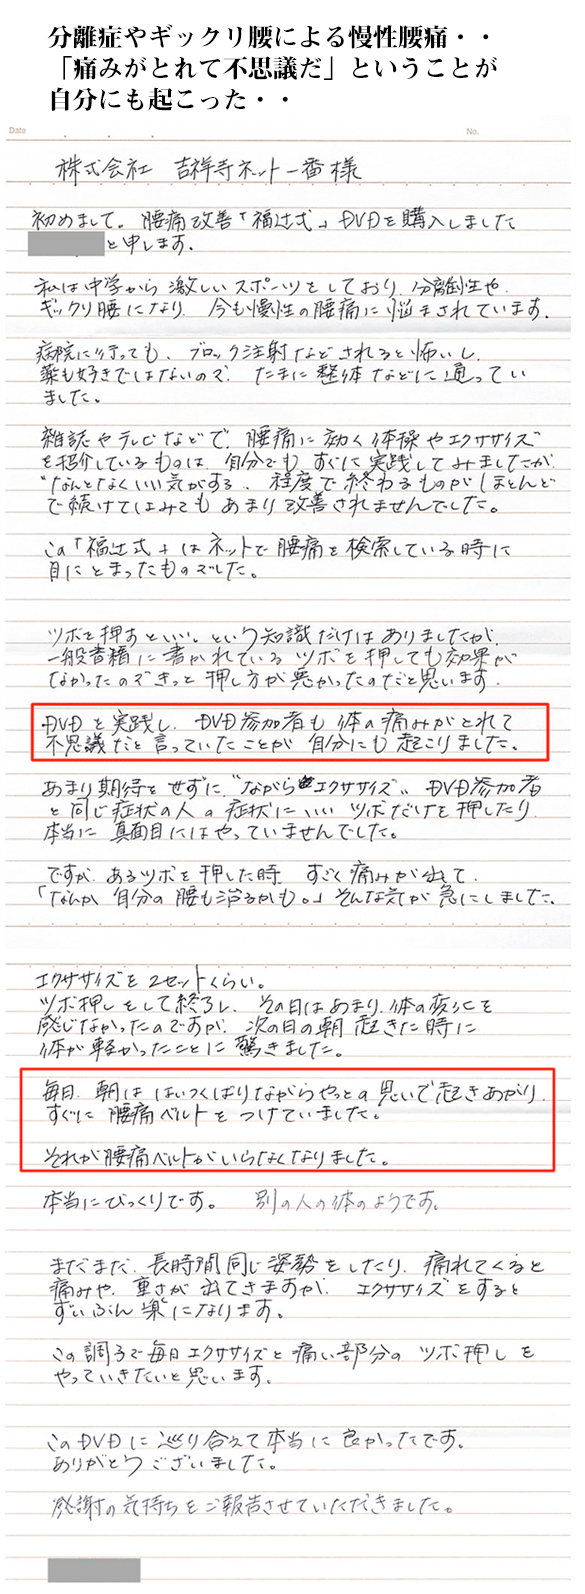 分離症やギックリ腰による慢性腰痛・・
「痛みがとれて不思議だ」ということが
自分にも起こった・・
Date
No.
株式会社 吉祥寺ネット一番様
初めまして。腰痛改善「福辻式」DVDを購入しました
と申します。
私は中学から激しいスポーツをしており、分離症や
ギックリ腰になり、今も慢性の腰痛に悩まされています。
病院に行っても、ブロック注射などされると怖いし、
薬も好きではないので、たまに整体などに通ってい
ました。
雑誌やテレビなどで、腰痛に効く体操やエクササイズ
を紹介しているものは、自分でもすぐに実践してみましたが、
"なんとなくいい気がする、程度で終わるものがほとんど
で続けてはみてもあまり改善されませんでした。
この「福辻式」はネットで腰痛を検索している時に
目にとまったものでした。
ツボを押すといい。という知識だけはありましたが、
一般書籍に書かれているツボを押しても効果が
なかったのできっと押し方が悪かったのだと思います。
DVDを実践し、DVD参加者も体の痛みがとれて
不思議だと言っていたことが自分にも起こりました。
あまり期待をせずに"ながらエクササイズ"、DVD参加者
と同じ症状の人の症状にいいツボだけを押したり、
本当に真面目にはやっていませんでした。
ですが、あるツボを押した時 すごく痛みが出て、
「なんか自分の腰も治るかも。」そんな気が急にしました。
エクササイズを2セットくらい。
ツボ押しをして終了し、その日はあまり、体の変化を
感じなかったのですが、次の日の朝 起きた時に
体が軽かったことに驚きました。
毎日、朝は はいつくばりながらやっとの思いで起きあがり、
すぐに腰痛ベルトをつけていました。
それが腰痛ベルトがいらなくなりました。
本当にびっくりです。 別の人の体のようです。
まだまだ、長時間同じ姿勢をしたり、疲れてくると
痛みや、重さが出てきますが、エクササイズをすると
ずいぶん楽になります。
この調子で毎日エクササイズと痛い部分のツボ押しを
やっていきたいと思います。
このDVDに巡り合えて本当に良かったです。
ありがとうございました。
感謝の気持ちをご報告させていただきました。